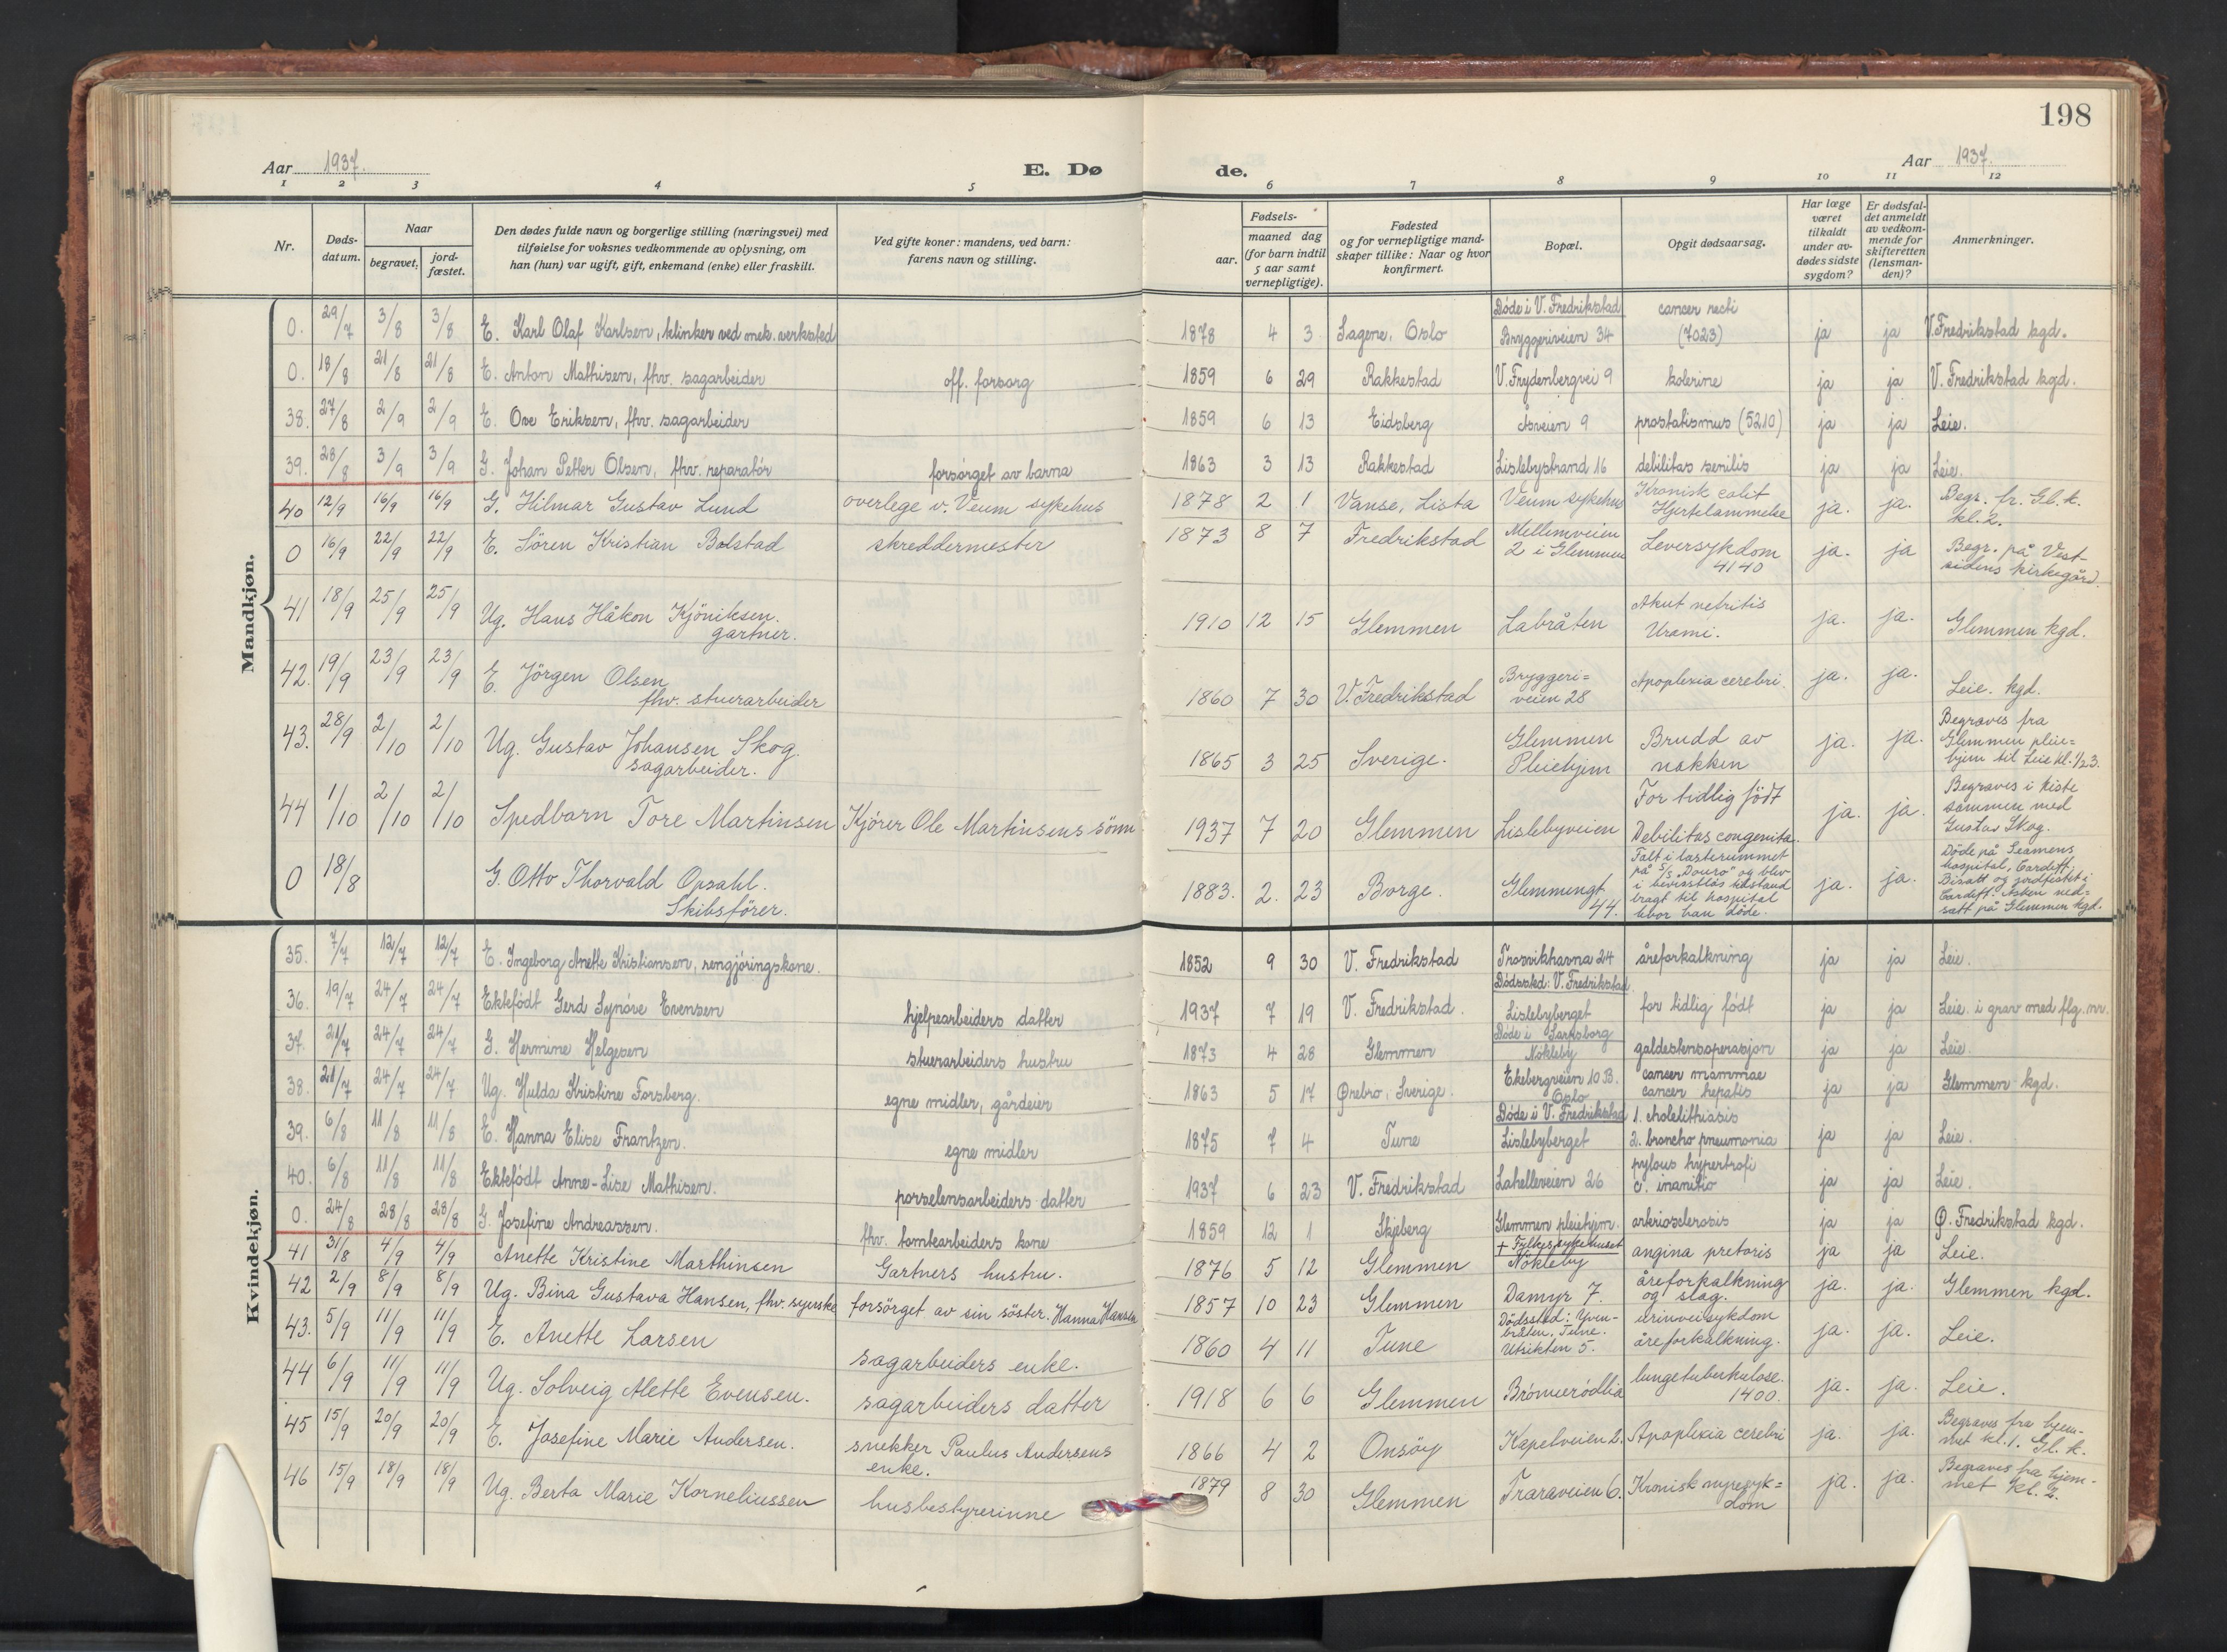 198
Aar 1937.
E. Dø de.
Aar 1937.
1 2 3 4 5 6 7 8 9 10 11 12
Nr.
Døds-
datum.
Naar
begravet.
jord-
fæstet.
Den dødes fulde navn og borgerlige stilling (næringsvei) med
tilføielse for voksnes vedkommende av oplysning, om
han (hun) var ugift, gift, enkemand (enke) eller fraskilt.
Ved gifte koner: mandens, ved barn:
farens navn og stilling.
Fødsels-
aar.
maaned dag
(for barn indtil
5 aar samt
vernepligtige).
Fødested
og for vernepligtige mand-
skaper tillike: Naar og hvor
konfirmert.
Bopæl.
Opgit dødsaarsag.
Har læge
været
tilkaldt
under av-
dødes sidste
sygdom?
Er dødsfal-
det anmeldt
av vedkom-
mende for
skifteretten
(lensman-
den)?
Anmerkninger.
Mandkjøn.
0. 29/7 3/8 3/8 E. Karl Olaf Karlsen, klinker ved mek. verksted 1878 4 3 Sagene, Oslo Døde i V. Fredrikstad
Bryggeriveien 34 cancer recti
(7023) ja ja V. Fredrikstad kgd.
0. 18/8 21/8 21/8 E. Anton Mathisen, fhv. sagarbeider off. forsorg 1859 6 29 Rakkestad V. Frydenbergvei 9 kolerine ja ja V. Fredrikstad kgd.
38. 27/8 2/9 2/9 E. Ove Eriksen, fhv. sagarbeider 1859 6 13 Eidsberg Åsveien 9 prostatismus (5210) ja ja Leie.
39. 28/8 3/9 3/9 G. Johan Petter Olsen, fhv. reparatør forsørget av barna 1863 3 13 Rakkestad Lislebystrand 16 debilitas senilis ja ja Leie.
40 12/9 16/9 16/9 G. Hilmar Gustav Lund overlege v. Veum sykehus 1878 2 1 Vanse, Lista Veum sykehus Kronisk colit
Hjertelammelse ja. ja. Begr. fr. Gl. k.
kl. 2.
0 16/9 22/9 22/9 E. Sören Kristian Bolstad skreddermester 1873 8 7 Fredrikstad Mellemveien
2 i Glemmen Leversykdom
4140 ja. ja Begr. på Vest-
sidens kirkegård.
41 18/9 25/9 25/9 Ug. Hans Håkon Kjöniksen.
gartner. 1910 12 15 Glemmen Labråten Akut nefritis
Urami. ja. ja. Glemmen kgd.
42. 19/9 23/9 23/9 E. Jörgen Olsen
fhv. stuerarbeider 1860 7 30 V. Fredrikstad Bryggeri=
veien 28 Apoplexia cerebri. ja. ja. Leie. kgd.
43. 28/9 2/10 2/10 Ug. Gustav Johansen Skog.
sagarbeider. 1865 3 25 Sverige. Glemmen
Pleiehjem Brudd av
nakken ja. ja. Begraves fra
Glemmen pleie=
hjem til Leie kl. 1/2 3.
44 1/10 2/10 2/10 Spedbarn Tore Martinsen Kjörer Ole Martinsens sönn 1937 7 20 Glemmen Lislebyveien For tidlig födt
Debilitas congenita. ja. ja. Begraves i kiste
sammen med
Gustav Skog.
0 18/8 G. Otto Thorvald Opsahl.
Skibsförer. 1883. 2. 23 Borge. Glemmengt.
44. Falt i lasterummet
på S/S "Douro" og blev
i bevisstlös tilstand
bragt til hospital
hvor han döde. ja. ja. Döde på Seamens
hospital, Cardiff,
Bisatt og jordfestet i
Cardiff. Asken ned=
satt på Glemmen kgd.
Kvindekjøn.
35. 7/7 12/7 12/7 E. Ingeborg Anette Kristiansen, rengjøringskone. 1852 9 30 V. Fredrikstad Trosvikhavna 24 åreforkalkning ja ja Leie.
36. 19/7 24/7 24/7 Ektefødt Gerd Synøve Evensen hjelpearbeiders datter 1937 7 19 V. Fredrikstad. Dødssted: V. Fredrikstad
Lislebyberget for tidlig født ja ja Leie. i grav med flg. nr.
37. 21/7 24/7 24/7 G. Hermine Helgesen stuerarbeiders hustru 1873 4 28 Glemmen Døde i Sarpsborg
Nøkleby galdestensoperasjon ja ja Leie.
38. 21/7 24/7 24/7 Ug. Hulda Kristine Forsberg. egne midler, gårdeier 1863 5 17 Ørebro, Sverige. Ekebergveien 10 B.
Oslo cancer mammae
cancer hepatis ja ja Glemmen kgd.
39. 6/8 11/8 11/8 E. Hanna Elise Frantzen. egne midler 1875 7 4 Tune Døde i V. Fredrikstad
Lislebyberget 1. cholelithiasis
2. broncho pneumonia ja ja Leie.
40. 6/8 11/8 11/8 Ektefødt Anne-Lise Mathisen. porselensarbeiders datter 1937 6 23 V. Fredrikstad Lahelleveien 26 pylous hypertrofi
o. inanitio ja ja Leie.
0. 24/8 28/8 28/8 G. Josefine Andreassen. fhv. tomtearbeiders kone 1859 12 1 Skjeberg Glemmen pleiehjem. arteriosclerosis ja ja Ø. Fredrikstad kgd.
41 31/8 4/9 4/9 Anette Kristine Marthinsen Gartners hustru. 1876 5 12 Glemmen + Fylkessykehuset
Nökleby angina pectoris ja ja Leie.
42 2/9 8/9 8/9 Ug. Bina Gustava Hansen, fhv. syerske forsörget av sin söster. Hanna Hansen 1857 10 23 Glemmen Damyr 7. åreforkalkning
og slag. ja. ja. Glemmen kgd.
43. 5/9 11/9 11/9 E. Anette Larsen sagarbeiders enke. 1860 4 11 Tune Dödssted:
Tune.
Utsikten 5. urinveisykdom
åreforkalkning. ja. ja. Leie.
44 6/9 11/9 11/9 Ug. Solveig Alette Evensen. sagarbeiders datter 1918 6 6 Glemmen Brönneródlia lungetuberkulose.
1400. ja. ja. Leie.
45 15/9 20/9 20/9 E. Josefine Marie Andersen. snekker Paulus Andersens
enke. 1866 4 2 Onsöy Kapelveien 2. Apoplexia cerebri ja. ja. Begraves fra hjem-
met kl. 1. Gl. k.
46 15/9 18/9 18/9 Ug. Berta Marie Korneliussen husbestyrerinne 1879 8 30 Glemmen Traraveien 6. Kronisk nyresyk=
dom ja. ja. Begraves fra hjem-
met kl. 2.